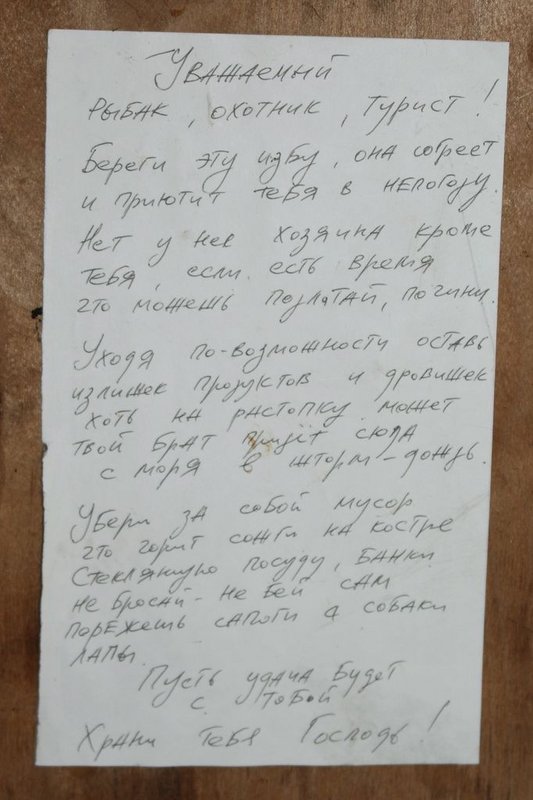 Уважаемый
рыбак, охотник, турист!
Береги эту избу, она согреет
и приютит тебя в непогоду.
Нет у нее хозяина кроме
тебя, если есть время
что можешь подлатай, почини.
Уходя по-возможности оставь
излишек продуктов и дровишек
хоть на растопку может
твой брат придёт сюда
с моря в шторм-дождь.
Убери за собой мусор
что горит сожги на костре
стеклянную посуду, банки
не бросай - не бей сам
порежешь сапоги а собаки
лапы.
Пусть удача будет
с тобой
Храни тебя Господь!